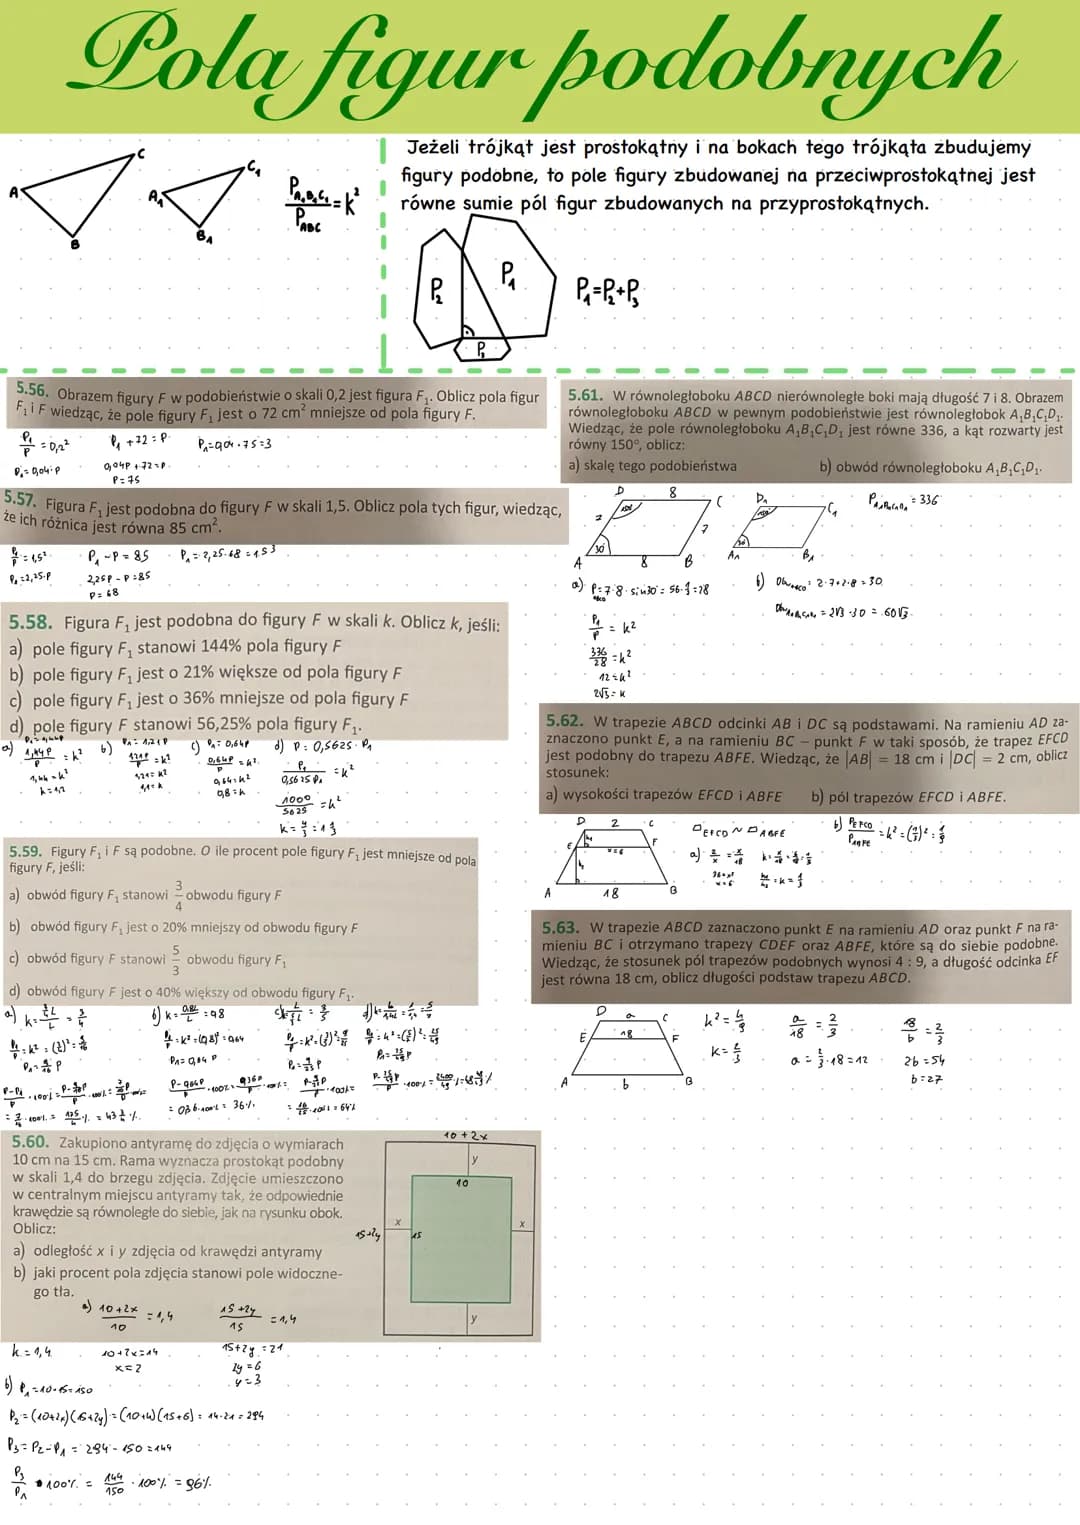 Pola figur podobnych
A
B
C
A₁
B₁
C₁
P_A₁B₁C₁ / P_ABC = k²
Jeżeli trójkąt jest prostokątny i na bokach tego trójkąta zbudujemy
figury podobne, to pole figury zbudowanej na przeciwprostokątnej jest
równe sumie pól figur zbudowanych na przyprostokątnych.
P₂
P₁
P₃
P₁=P₂+P₃
5.56. Obrazem figury F w podobieństwie o skali 0,2 jest figura F₁. Oblicz pola figur
F₁ i F wiedząc, że pole figury F₁ jest o 72 cm² mniejsze od pola figury F.
P₁/P = 0,2²
P₁ + 72 = P
P₁=0,04·75=3
P₁=0,04·P
0,04P + 72 = P
P = 75
5.57. Figura F₁ jest podobna do figury F w skali 1,5. Oblicz pola tych figur, wiedząc,
że ich różnica jest równa 85 cm².
P₁/P = 1,5²
P₁ - P = 85
P₁ = 2,25·68 = 153
P₁ = 2,25·P
2,25P - P = 85
P = 68
5.58. Figura F₁ jest podobna do figury F w skali k. Oblicz k, jeśli:
a) pole figury F₁ stanowi 144% pola figury F
b) pole figury F₁ jest o 21% większe od pola figury F
c) pole figury F₁ jest o 36% mniejsze od pola figury F
d) pole figury F stanowi 56,25% pola figury F₁.
a) P₁ = 1,44P
1,44P/P = k²
1,44 = k²
k = 1,2
b) P₁ = 1,21P
1,21P/P = k²
1,21 = k²
1,1 = k
c) P₁ = 0,64P
0,64P/P = k²
0,64 = k²
0,8 = k
d) P = 0,5625·P₁
P₁/0,5625P₁ = k²
1000/5625 = k²
k = 4/3 = 1 1/3
5.59. Figury F₁ i F są podobne. O ile procent pole figury F₁ jest mniejsze od pola
figury F, jeśli:
a) obwód figury F₁ stanowi 3/4 obwodu figury F
b) obwód figury F₁ jest o 20% mniejszy od obwodu figury F
c) obwód figury F stanowi 5/3 obwodu figury F₁
d) obwód figury F jest o 40% większy od obwodu figury F₁.
b) k = 0,8L/L = 0,8
P₁/P = k² = (0,8)² = 0,64
= 0,36·100% = 36%
5.60. Zakupiono antyramę do zdjęcia o wymiarach
10 cm na 15 cm. Rama wyznacza prostokąt podobny
w skali 1,4 do brzegu zdjęcia. Zdjęcie umieszczono
w centralnym miejscu antyramy tak, że odpowiednie
krawędzie są równoległe do siebie, jak na rysunku obok.
Oblicz:
a) odległość x i y zdjęcia od krawędzi antyramy
b) jaki procent pola zdjęcia stanowi pole widoczne-
go tła.
10 + 2x
y
10
x
15
x
15+2y
y
a) 10+2x/10 = 1,4
15+2y/15 = 1,4
k = 1,4
10+2x=14
x=2
15+2y = 21
2y = 6
y = 3
b) P₁ = 10·15 = 150
P₂ = (10+2x)(15+2y) = (10+4)(15+6) = 14·21 = 294
P₃ = P₂ - P₁ = 294 - 150 = 144
P₃/P₁ · 100% = 144/150 · 100% = 96%
5.61. W równoległoboku ABCD nierównoległe boki mają długość 7 i 8. Obrazem
równoległoboku ABCD w pewnym podobieństwie jest równoległobok A₁B₁C₁D₁.
Wiedząc, że pole równoległoboku A₁B₁C₁D₁ jest równe 336, a kąt rozwarty jest
równy 150°, oblicz:
a) skalę tego podobieństwa
b) obwód równoległoboku A₁B₁C₁D₁.
D
8
C
7
150°
7
30°
A
8
B
D₁
C₁
A₁
B₁
P_A₁B₁C₁D₁ = 336
a) P_ABCD = 7·8·sin30° = 56·1/2 = 28
P₁/P = k²
336/28 = k²
12 = k²
2√3 = k
b) Obw_ABCD = 2·7+2·8 = 30
Obw_A₁B₁C₁D₁ = 2√3·30 = 60√3
5.62. W trapezie ABCD odcinki AB i DC są podstawami. Na ramieniu AD za-
znaczono punkt E, a na ramieniu BC – punkt F w taki sposób, że trapez EFCD
jest podobny do trapezu ABFE. Wiedząc, że |AB| = 18 cm i |DC| = 2 cm, oblicz
stosunek:
a) wysokości trapezów EFCD i ABFE
b) pól trapezów EFCD i ABFE.
D
2
C
E
x=6
F
A
18
B
▱EFCD ~ ▱ABFE
a) 2/x = x/18
36=x²
x=6
k = x/18 = 6/18 = 1/3
h₁/h₂ = k = 1/3
b) P_EFCD/P_ABFE = k² = (1/3)² = 1/9
5.63. W trapezie ABCD zaznaczono punkt E na ramieniu AD oraz punkt F na ra-
mieniu BC i otrzymano trapezy CDEF oraz ABFE, które są do siebie podobne.
Wiedząc, że stosunek pól trapezów podobnych wynosi 4 : 9, a długość odcinka EF
jest równa 18 cm, oblicz długości podstaw trapezu ABCD.
D
a
C
E
18
F
A
b
B
k² = 4/9
k = 2/3
a/18 = 2/3
a = 2/3·18 = 12
18/b = 2/3
2b = 54
b = 27